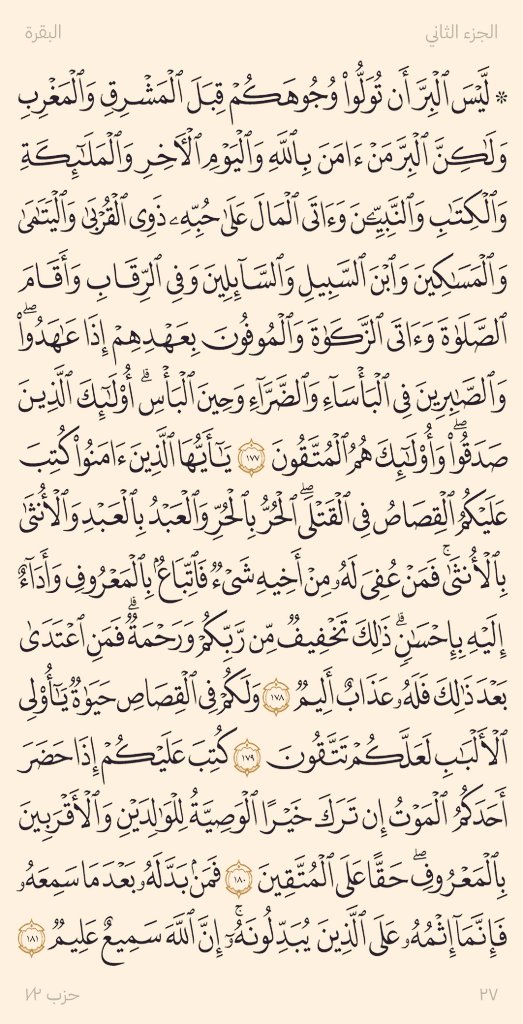 الجزء الثاني
البقرة
۞ لَّيْسَ ٱلْبِرَّ أَن تُوَلُّوا۟ وُجُوهَكُمْ قِبَلَ ٱلْمَشْرِقِ وَٱلْمَغْرِبِ
وَلَـٰكِنَّ ٱلْبِرَّ مَنْ ءَامَنَ بِٱللَّهِ وَٱلْيَوْمِ ٱلْـَٔاخِرِ وَٱلْمَلَـٰٓئِكَةِ
وَٱلْكِتَـٰبِ وَٱلنَّبِيِّـۧنَ وَءَاتَى ٱلْمَالَ عَلَىٰ حُبِّهِۦ ذَوِى ٱلْقُرْبَىٰ وَٱلْيَتَـٰمَىٰ
وَٱلْمَسَـٰكِينَ وَٱبْنَ ٱلسَّبِيلِ وَٱلسَّآئِلِينَ وَفِى ٱلرِّقَابِ وَأَقَامَ
ٱلصَّلَوٰةَ وَءَاتَى ٱلزَّكَوٰةَ وَٱلْمُوفُونَ بِعَهْدِهِمْ إِذَا عَـٰهَدُوا۟ۖ
وَٱلصَّـٰبِرِينَ فِى ٱلْبَأْسَآءِ وَٱلضَّرَّآءِ وَحِينَ ٱلْبَأْسِۗ أُو۟لَـٰٓئِكَ ٱلَّذِينَ
صَدَقُوا۟ۖ وَأُو۟لَـٰٓئِكَ هُمُ ٱلْمُتَّقُونَ ١٧٧ يَـٰٓأَيُّهَا ٱلَّذِينَ ءَامَنُوا۟ كُتِبَ
عَلَيْكُمُ ٱلْقِصَاصُ فِى ٱلْقَتْلَىۖ ٱلْحُرُّ بِٱلْحُرِّ وَٱلْعَبْدُ بِٱلْعَبْدِ وَٱلْأُنثَىٰ
بِٱلْأُنثَىٰۚ فَمَنْ عُفِىَ لَهُۥ مِنْ أَخِيهِ شَىْءٌ فَٱتِّبَاعٌۢ بِٱلْمَعْرُوفِ وَأَدَآءٌ
إِلَيْهِ بِإِحْسَـٰنٍۗ ذَٰلِكَ تَخْفِيفٌ مِّن رَّبِّكُمْ وَرَحْمَةٌۗ فَمَنِ ٱعْتَدَىٰ
بَعْدَ ذَٰلِكَ فَلَهُۥ عَذَابٌ أَلِيمٌ ١٧٨ وَلَكُمْ فِى ٱلْقِصَاصِ حَيَوٰةٌ يَـٰٓأُو۟لِى
ٱلْأَلْبَـٰبِ لَعَلَّكُمْ تَتَّقُونَ ١٧٩ كُتِبَ عَلَيْكُمْ إِذَا حَضَرَ
أَحَدَكُمُ ٱلْمَوْتُ إِن تَرَكَ خَيْرًا ٱلْوَصِيَّةُ لِلْوَٰلِدَيْنِ وَٱلْأَقْرَبِينَ
بِٱلْمَعْرُوفِۖ حَقًّا عَلَى ٱلْمُتَّقِينَ ١٨٠ فَمَنۢ بَدَّلَهُۥ بَعْدَ مَا سَمِعَهُۥ
فَإِنَّمَآ إِثْمُهُۥ عَلَى ٱلَّذِينَ يُبَدِّلُونَهُۥٓۚ إِنَّ ٱللَّهَ سَمِيعٌ عَلِيمٌ ١٨١
٢٧